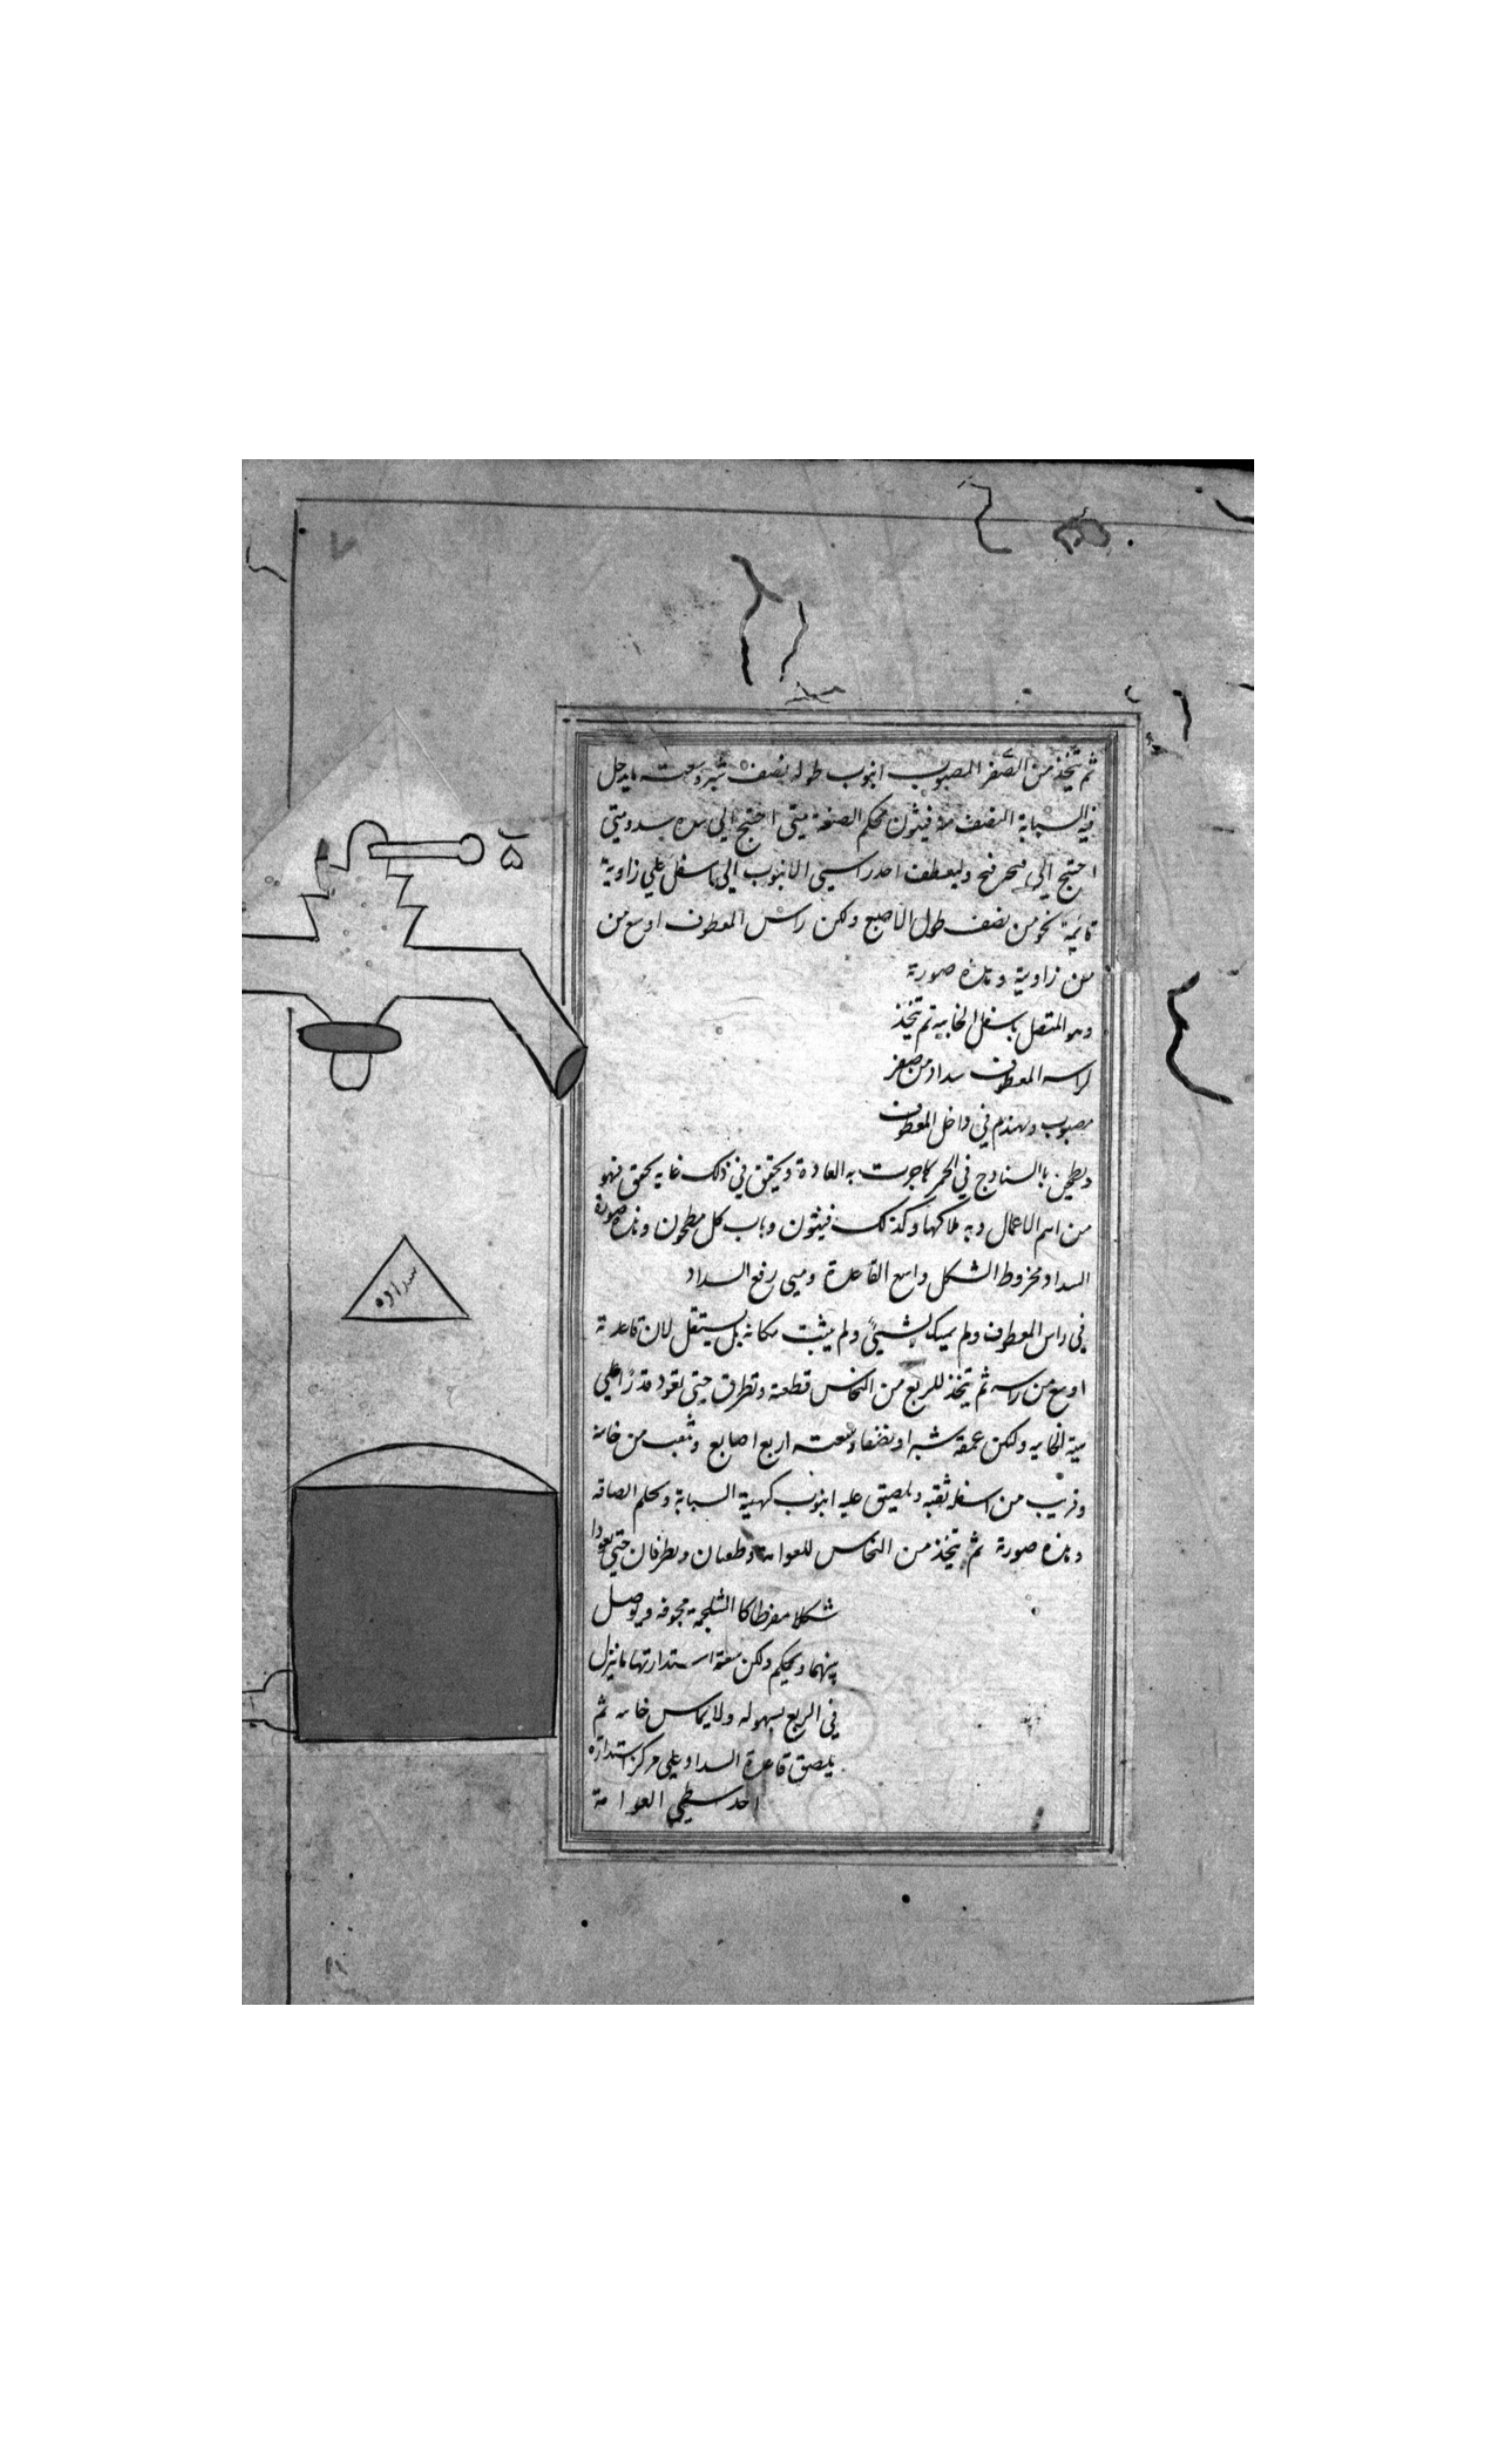 ثم يتخذ من الصفر المصبوب انبوب طوله نصف شبر وسعته ما يدخل
فيه السبابة النصف منه فيثون محكم الصنعة متى احتيج الى سده سد ومتى
احتيج الى فتحه فتح وليعطف احد راسي الانبوب الى ما سفل على زاوية
قائمة نحو من نصف طول الاصبع ولكن راس المعطوف اوسع من
من زاوية وهذه صورة
وهو المتصل باسفل الخابيه ثم يتخذ
لراسه المعطوف سداد من صفر
مصبوب ويهندم في داخل المعطوف
ويطحن بالسنادج في الحمر كما جرت به العادة ويحقق في ذلك غاية تحقق فهو
من اهم الاعمال وبه ملاكها وكذلك فيثون وباب كل مطحون وهذه صورة
السداد مخروط الشكل واسع القاعدة ومتى رفع السداد
في راس المعطوف ولم يمسك بشيئ ولم يثبت مكانه بل يستقل لان قاعدته
اوسع من راسه ثم يتخذ للربع من النحاس قطعة وتطرق حتى تعود قدرا على
هيئة الخابيه ولكن عمقه شبرا ونصفا وسعته اربع اصابع وثقب من خانه
وقريب من اسفله ثقبه ويلصق عليه انبوب كهيئة السبابة ويحكم الصاقه
وهذه صورة ثم يتخذ من النحاس للعوامة قطعتان ويطرقان حتى يعودا
شكلا مفرطحا كالشلجمة مجوفه ويوصل
بينهما ويحكم ولكن سعة استدارتها ما ينزل
في الربع بسهوله ولا يماس خانه ثم
يلصق قاعدة السداد على مركز استدارة
احد سطحي العوامة
سداده